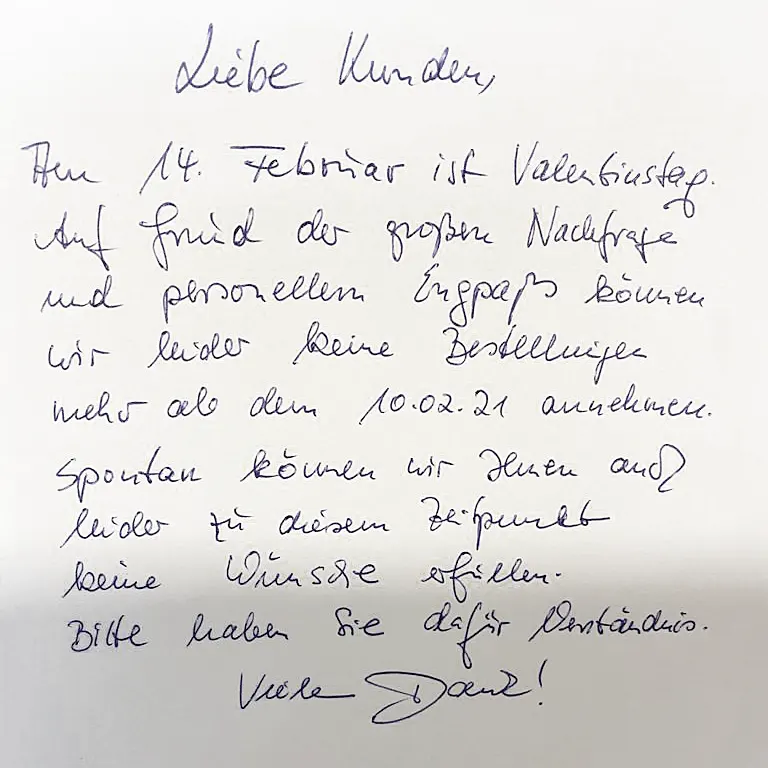 Liebe Kunden,
Am 14. Februar ist Valentinstag.
Auf Grund der großen Nachfrage
und personellem Engpaß können
wir leider keine Bestellungen
mehr ab dem 10.02.21 annehmen.
Spontan können wir Ihnen auch
leider zu diesem Zeitpunkt
keine Wünsche erfüllen.
Bitte haben Sie dafür Verständnis.
Vielen Dank!